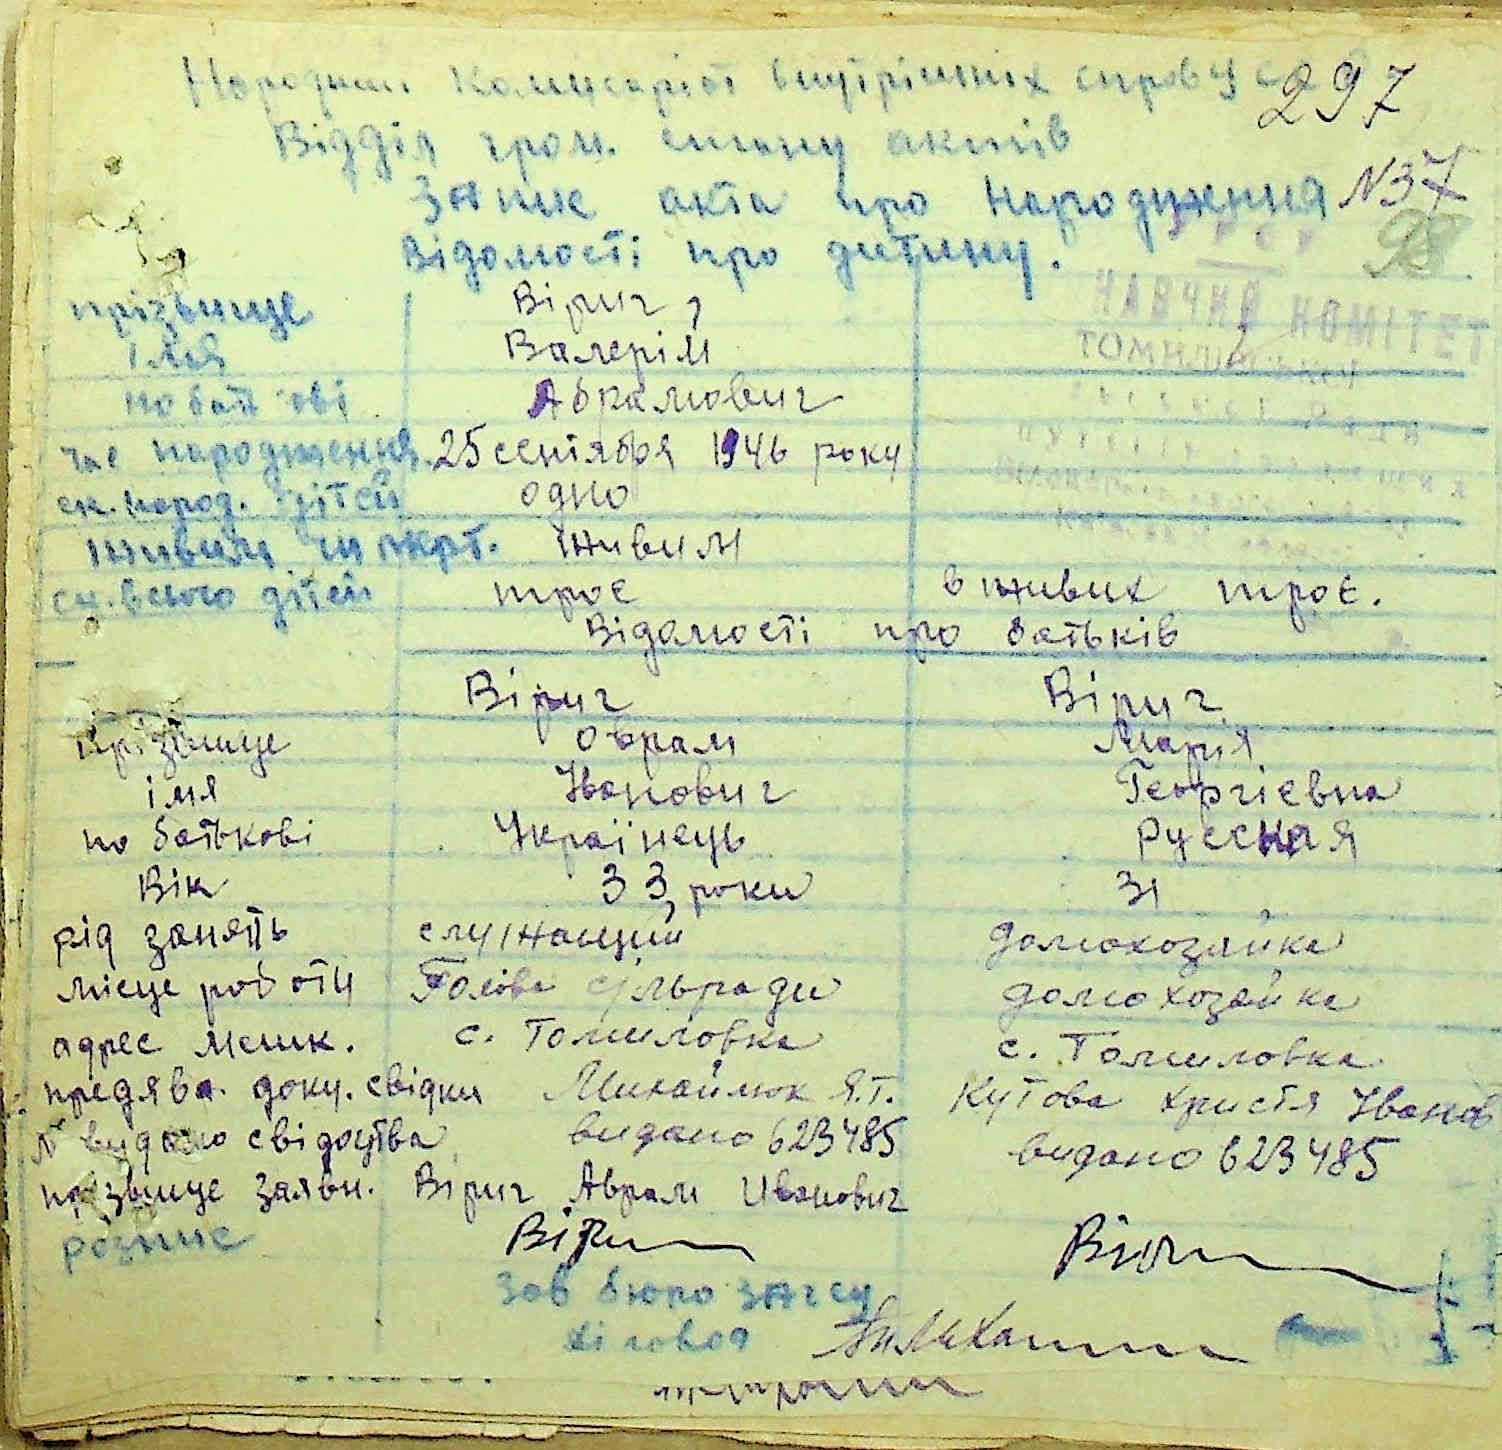 Народний Комісаріат внутрішніх справ УС 297
Відділ гром. стану актів
Запис акта про народження N37
Відомості про дитину. 98
НАВЧИЙ КОМІТЕТ
прізвище Вірич,
імя Валерій
по бат ові Абрамович
час народження 25 сентября 1946 року
ск. народ. дітей одно
живим чи мерт. живим
ск. всього дітей троє в живих троє.
Відомості про батьків
прізвище Вірич Вірич
імя Оврам Марія
по батькові Іванович Георгіевна
Українець Русская
Вік 33 роки 31
рід занять служащий домохозяйка
місце роботи Голова сільради домохозяйка
адрес мешк. с. Томиловка с. Томиловка
предяв. доку. свідки Михайлюк Я.Т. Кутова Христя Іванов
N видано свідоцтва видано 623485 видано 623485
прізвище заявн. Вірич Аврам Иванович
розпис Вірич
Зав бюро загсу
діловод